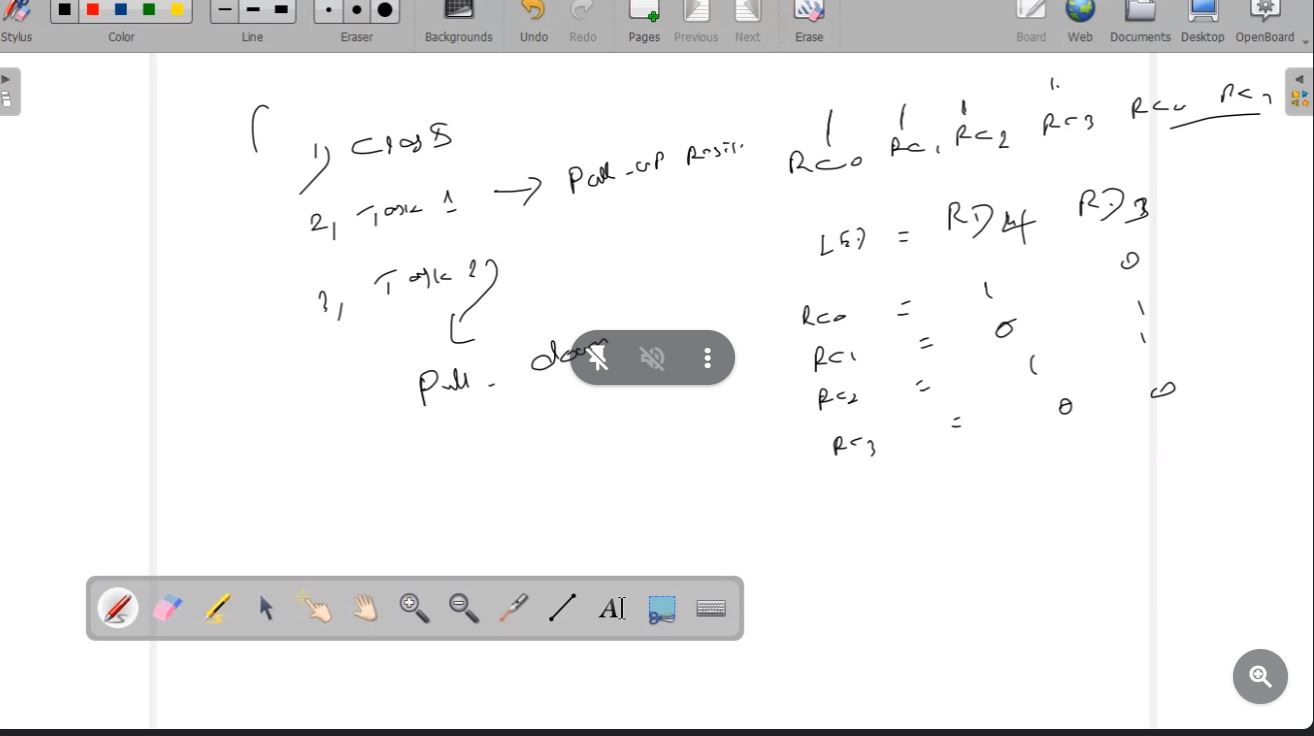 Stylus Color Line Eraser Backgrounds Undo Redo Pages Previous Next Erase Board Web Documents Desktop OpenBoard
1) Class
2, Task 1 → Pull-up
3, Task 2
Pull - down
RC0 RC1 RC2 RC3
LED = RD4 RD3
RC0 = 1 0
RC1 = 0 1
RC2 = 1 1
RC3 = 0 0